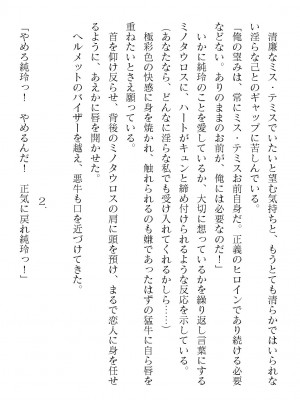 清廉なミス・テミスでいたいと望む気持ちと、もうとても清らかではいられな
い淫らな己とのギャップに苦しんでいる。
「俺の望みは、常にミス・テミスお前自身だ。正義のヒロインであり続ける必要
などない。ありのままのお前が、俺には必要なのだ」
いかに純玲のことを愛しているか、大切に想っているかを繰り返し言葉にする
ミノタウロスに、ハートがキュンと締め付けられるような反応を示している。
(あなたなら、どんなに淫らな私でも受け入れてくれるかしら……)
極彩色の快感に身を焼かれ、触れられるのも嫌であったはずの猛牛に自ら唇を
重ねたいとさえ願っている。
首を仰け反らせ、背後のミノタウロスの肩に頭を預け、まるで恋人に身を任せ
るように、あえかに唇を開かせた。
ヘルメットのバイザーを越え、悪牛も口を近づけてきた。
2.
「やめろ純玲っ! やめるんだ! 正気に戻れ純玲っ!」